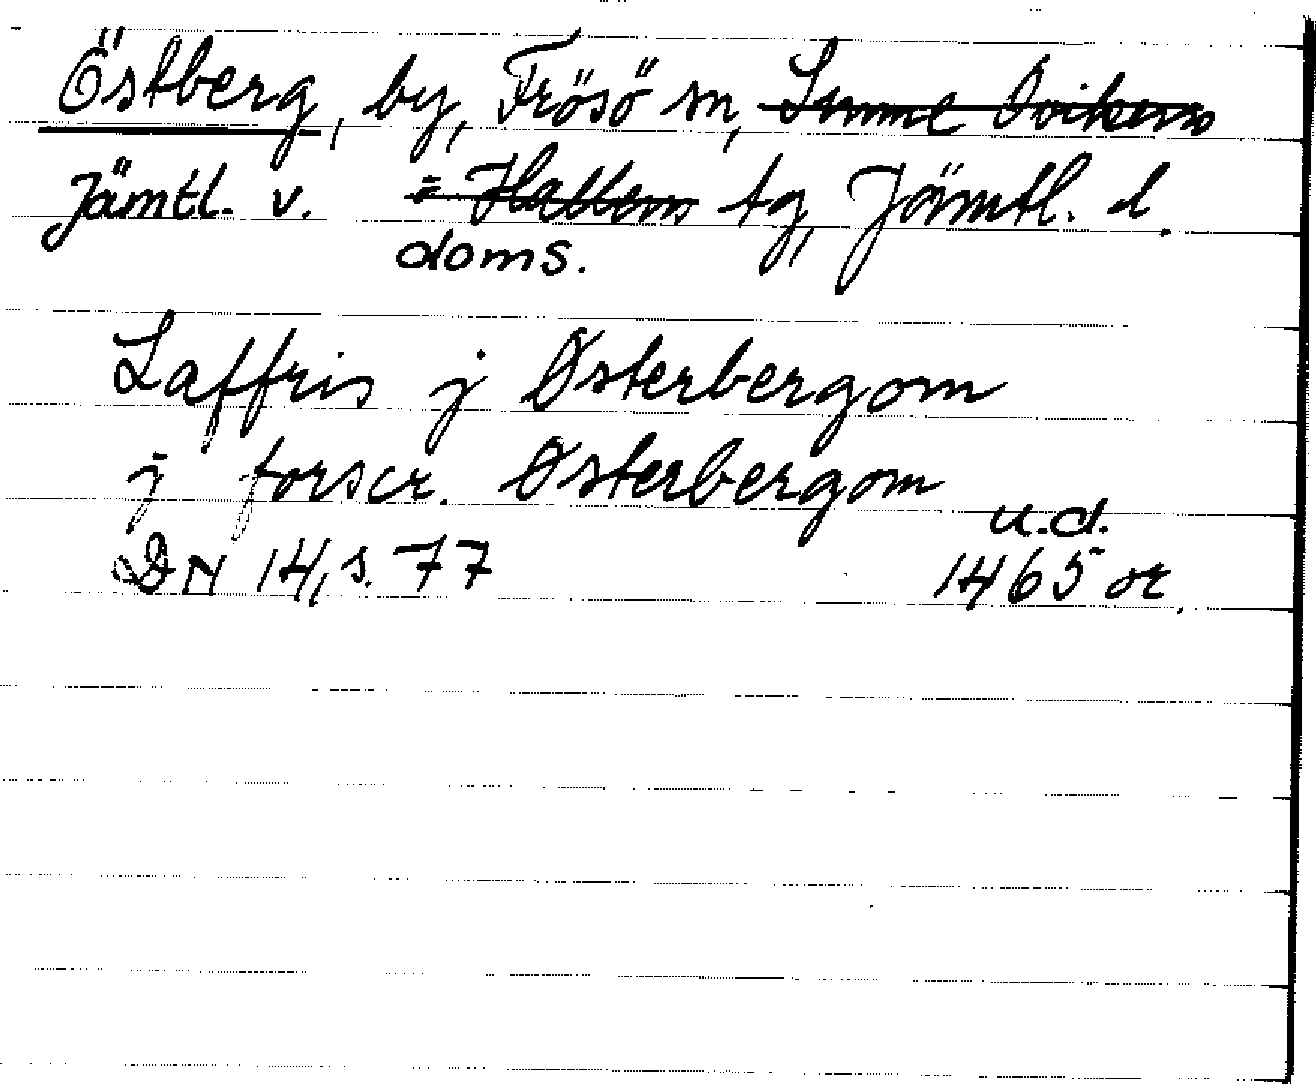 Östberg, by, Frösö sn, Sunne Ovikens
Jämtl. v. = Hallens tg, Jämtl. l.
doms.
Laffris j Østerbergom
j forscr. Østerbergom
u.d.
DN 14, s. 77 1465 or.